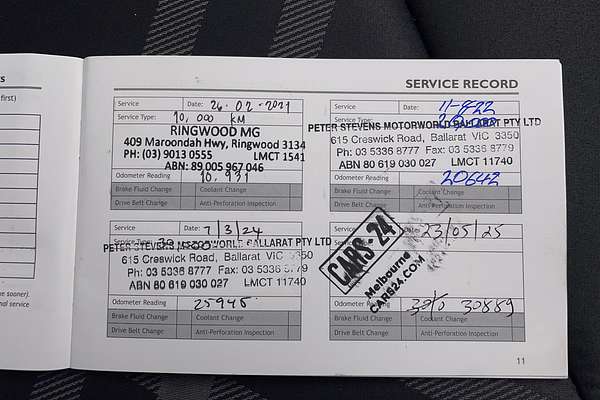 SERVICE RECORD
first)
Service Date: 26-02-2021
Service Type: 10,000 KM
RINGWOOD MG
409 Maroondah Hwy, Ringwood 3134
PH: (03) 9013 0555 LMCT 1541
ABN: 89 005 967 046
Odometer Reading 10,931
Brake Fluid Change Coolant Change
Drive Belt Change Anti-Perforation Inspection
Service Date: 11-8-22
Service Type:
PETER STEVENS MOTORWORLD BALLARAT PTY LTD
615 Creswick Road, Ballarat VIC 3350
Ph: 03 5336 8777 Fax: 03 5336 8779
ABN 80 619 030 027 LMCT 11740
Odometer Reading 20642
Brake Fluid Change Coolant Change
Drive Belt Change Anti-Perforation Inspection
Service Date: 7/3/24
Service Type:
PETER STEVENS MOTORWORLD BALLARAT PTY LTD
615 Creswick Road, Ballarat VIC 3350
Ph: 03 5336 8777 Fax: 03 5336 8779
ABN 80 619 030 027 LMCT 11740
Odometer Reading 25945
Brake Fluid Change Coolant Change
Drive Belt Change Anti-Perforation Inspection
Service Date: 23/05/25
CARS-24
Melbourne
CARS24.COM
Odometer Reading 30889
Brake Fluid Change Coolant Change
Drive Belt Change Anti-Perforation Inspection
soone).
nal service
11